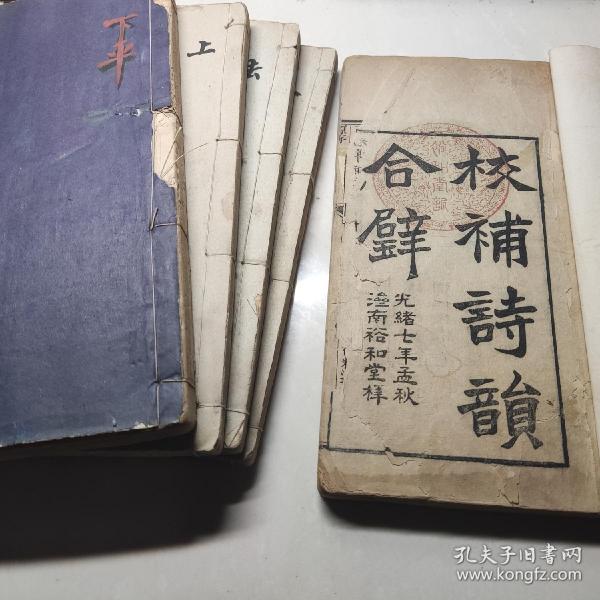 下平
上
去
校補詩韻
合璧
光緒七年孟秋
潼南裕和堂梓
孔夫子旧书网
www.kongfz.com